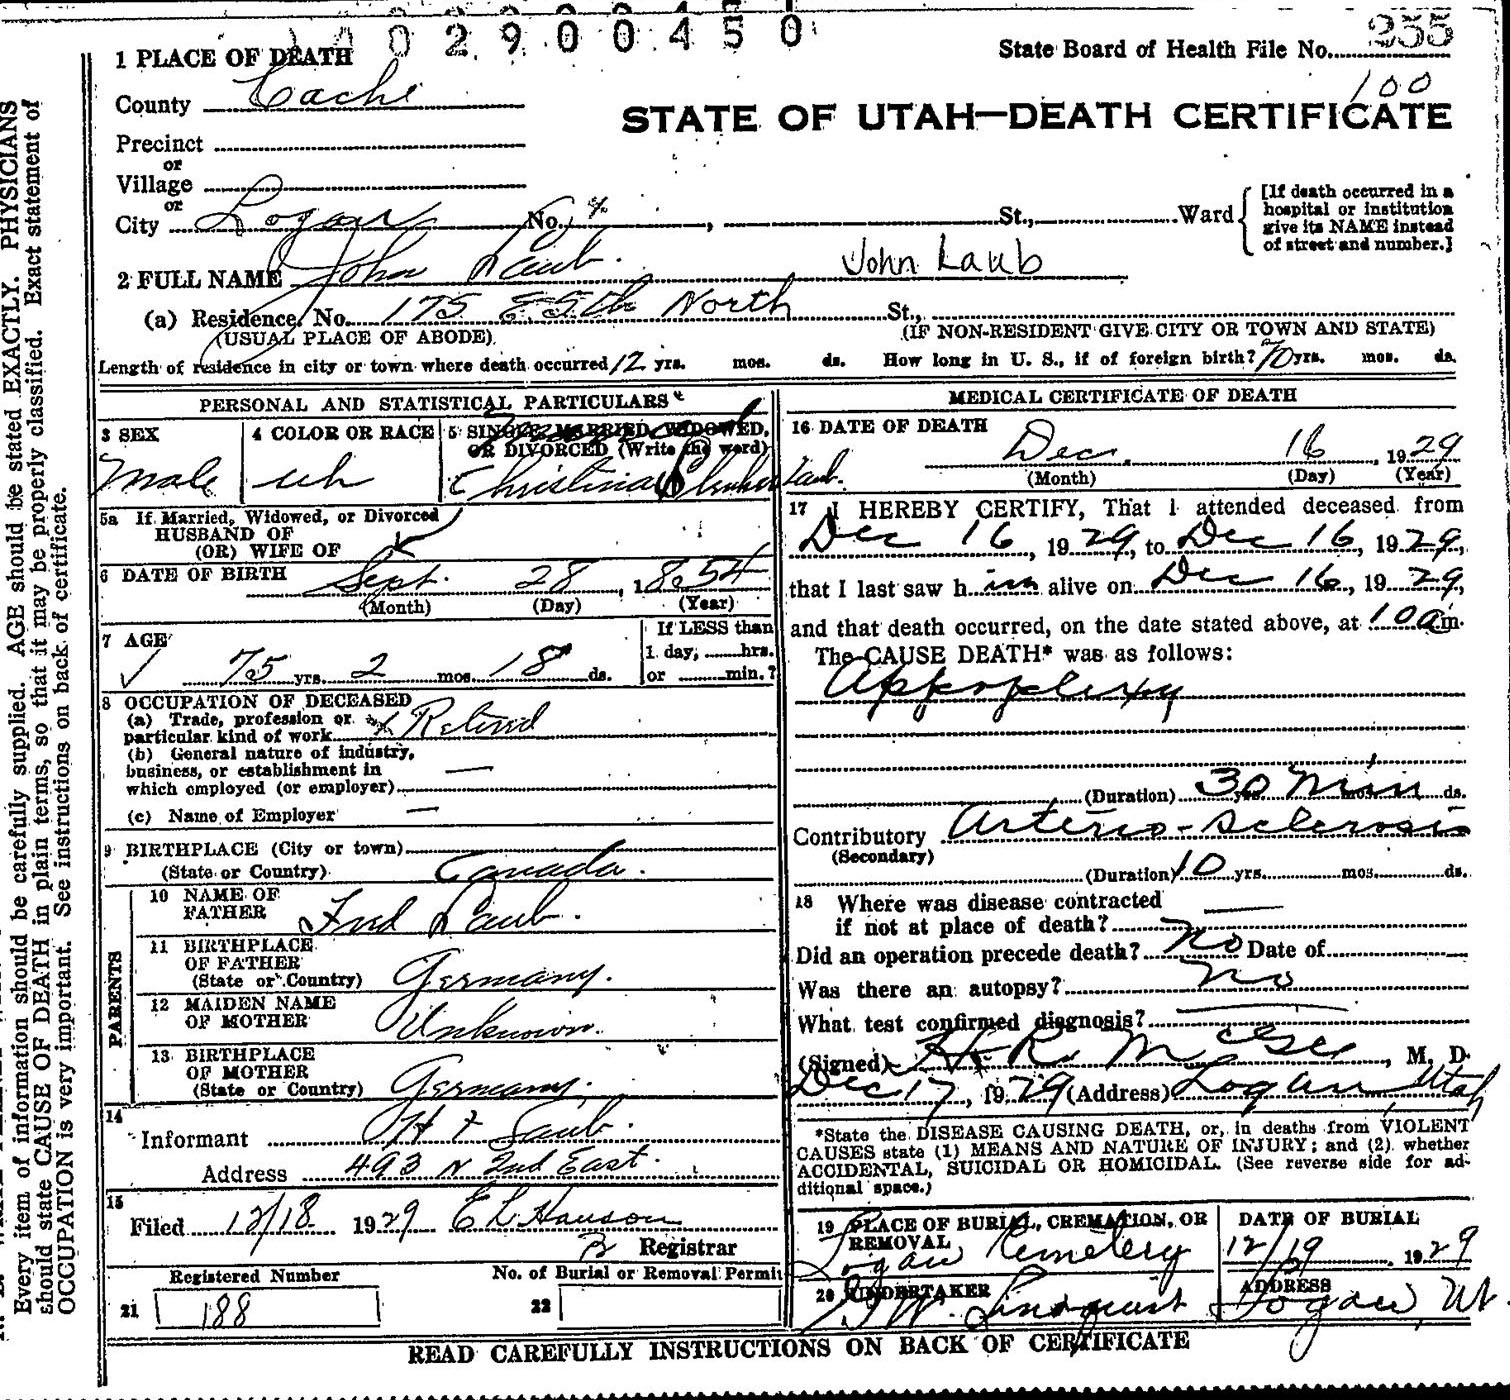 0290045 0
State Board of Health File No. 255
100
1 PLACE OF DEATH
County Cache
STATE OF UTAH—DEATH CERTIFICATE
Precinct
or
Village
or
City Logan No. , St., Ward
[If death occurred in a
hospital or institution
give its NAME instead
of street and number.]
2 FULL NAME John Laub. John Laub
(a) Residence. No. 175 E 5th North St.,
(USUAL PLACE OF ABODE) (IF NON-RESIDENT GIVE CITY OR TOWN AND STATE)
Length of residence in city or town where death occurred 12 yrs. mos. ds. How long in U. S., if of foreign birth? 70 yrs. mos. ds.
PERSONAL AND STATISTICAL PARTICULARS
3 SEX
Male
4 COLOR OR RACE
wh
5 SINGLE, MARRIED, WIDOWED,
OR DIVORCED (Write the word)
Christina Laub.
5a If Married, Widowed, or Divorced
HUSBAND OF
(OR) WIFE OF
6 DATE OF BIRTH Sept. 28, 1854
(Month) (Day) (Year)
7 AGE
75 yrs. 2 mos. 18 ds.
If LESS than
1 day, hrs.
or min.?
8 OCCUPATION OF DECEASED
(a) Trade, profession or
particular kind of work Retired
(b) General nature of industry,
business, or establishment in
which employed (or employer) —
(c) Name of Employer —
9 BIRTHPLACE (City or town)
(State or Country) Canada.
PARENTS
10 NAME OF
FATHER Fred Laub.
11 BIRTHPLACE
OF FATHER
(State or Country) Germany.
12 MAIDEN NAME
OF MOTHER Unknown.
13 BIRTHPLACE
OF MOTHER
(State or Country) Germany.
14
Informant Laub.
Address 493 N 2nd East.
15
Filed 12/18 1929 E L Hanson
Registrar
Registered Number
21 188
No. of Burial or Removal Permit
22
MEDICAL CERTIFICATE OF DEATH
16 DATE OF DEATH
Dec. 16, 1929
(Month) (Day) (Year)
17 I HEREBY CERTIFY, That I attended deceased from
Dec 16, 1929, to Dec 16, 1929,
that I last saw h im alive on Dec 16, 1929,
and that death occurred, on the date stated above, at 10 a m.
The CAUSE DEATH* was as follows:
Appoplexy
(Duration) 30 min yrs. mos. ds.
Contributory Arterio-sclerosis
(Secondary)
(Duration) 10 yrs. mos. ds.
18 Where was disease contracted
if not at place of death? —
Did an operation precede death? No Date of
Was there an autopsy? No
What test confirmed diagnosis? —
(Signed) H. R. McGee, M. D.
Dec 17, 1929 (Address) Logan, Utah
*State the DISEASE CAUSING DEATH, or, in deaths from VIOLENT
CAUSES state (1) MEANS AND NATURE OF INJURY; and (2) whether
ACCIDENTAL, SUICIDAL OR HOMICIDAL. (See reverse side for ad-
ditional space.)
19 PLACE OF BURIAL, CREMATION, OR
REMOVAL
Logan Kemetery
DATE OF BURIAL
12/19 1929
20 UNDERTAKER
W. Lindquist
ADDRESS
Logan, Ut.
READ CAREFULLY INSTRUCTIONS ON BACK OF CERTIFICATE
Every item of information should be carefully supplied. AGE should be stated EXACTLY. PHYSICIANS
should state CAUSE OF DEATH in plain terms, so that it may be properly classified. Exact statement of
OCCUPATION is very important. See instructions on back of certificate.